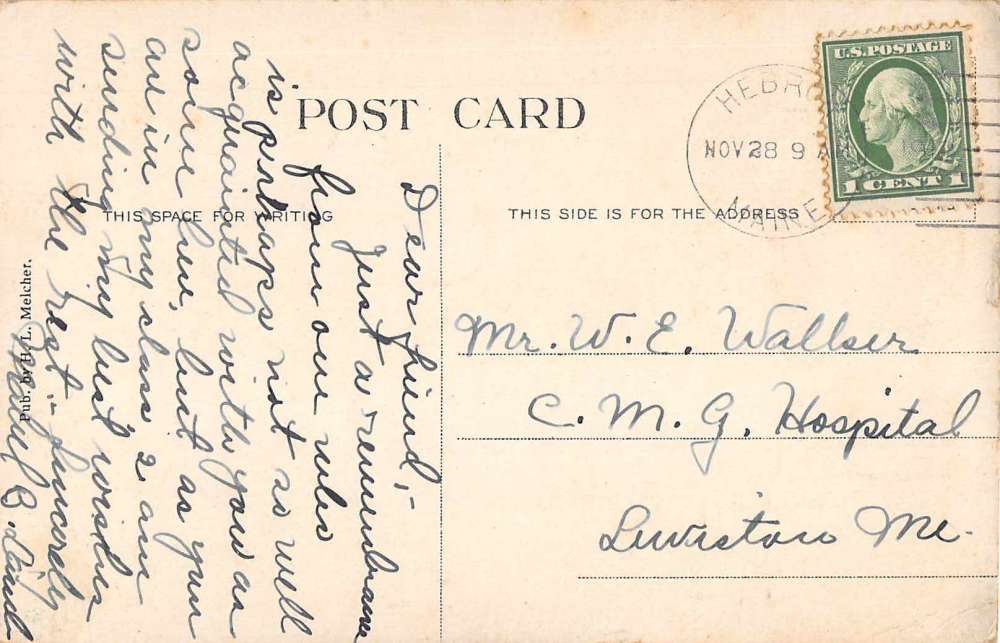 POST CARD
THIS SPACE FOR WRITING
THIS SIDE IS FOR THE ADDRESS
Pub. by H. L. Melcher.
U.S. POSTAGE
1 CENT 1
HEBRO
NOV 28 9 A
MAINE
Dear friend,-
Just a remembrance
from one who
is perhaps not so well
acquainted with you as
some here, but as you
are in my class I am
sending my best wishes
with the rest.- Sincerely
Mabel B.
Mr. W. E. Walker
C. M. G. Hospital
Lewiston Me.